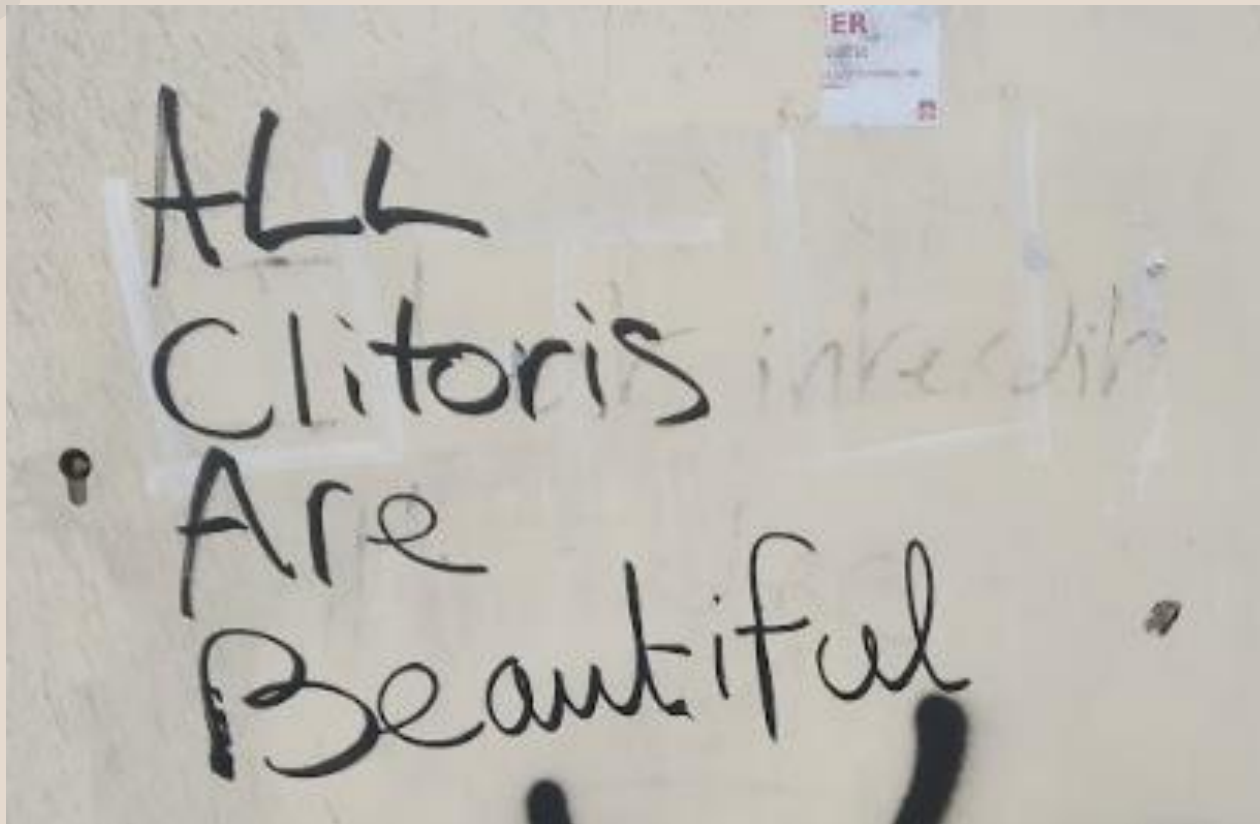 ER
ALL
Clitoris
Are
Beautiful